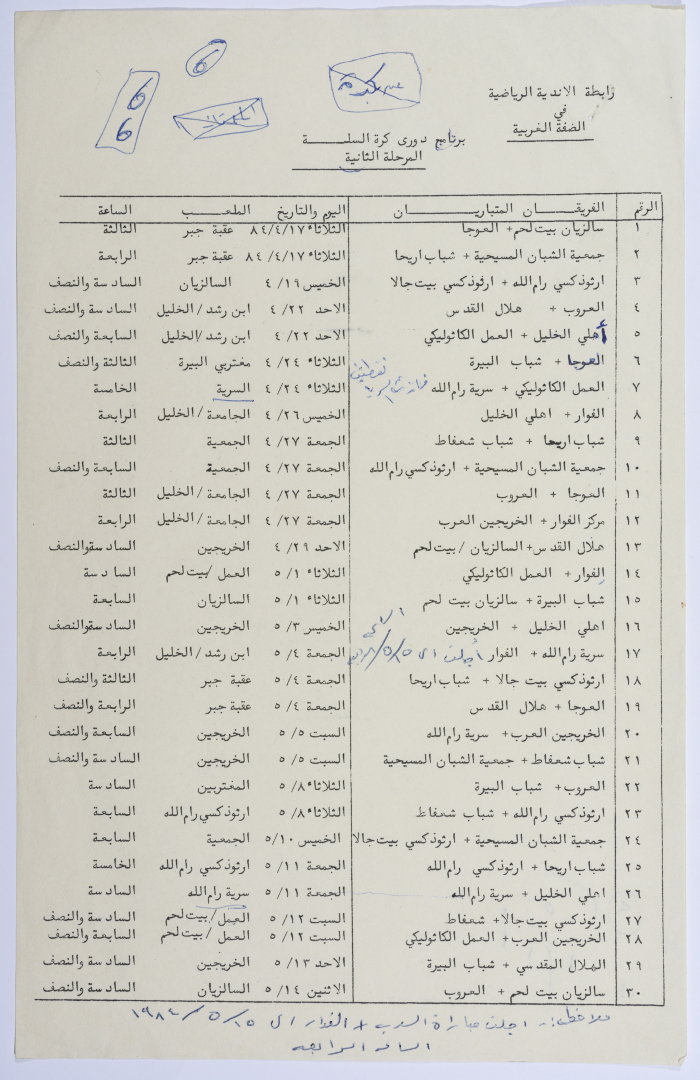 6
6
6
رابطة الاندية الرياضية
في
الضفة الغربية
برنامج دورى كرة السلـــــة
المرحلة الثانية
الرقم الفريقـــان المتباريـــــان اليوم والتاريخ الملعـــب الساعة
١ سالزيان بيت لحم + العوجا الثلاثاء ٨٤/٤/١٧ عقبة جبر الثالثة
٢ جمعية الشبان المسيحية + شباب اريحا الثلاثاء ٨٤/٤/١٧ عقبة جبر الرابعة
٣ ارثوذكسي رام الله + ارثوذكسي بيت جالا الخميس ٤/١٩ السالزيان السادسة والنصف
٤ العروب + هلال القدس الاحد ٤/٢٢ ابن رشد/الخليل السادسة والنصف
٥ أهلي الخليل + العمل الكاثوليكي الاحد ٤/٢٢ ابن رشد/الخليل السابعة والنصف
٦ العوجا + شباب البيرة الثلاثاء ٤/٢٤ مغتربي البيرة الثالثة والنصف
٧ العمل الكاثوليكي + سرية رام الله الثلاثاء ٤/٢٤ السرية الخامسة
٨ الفوار + اهلي الخليل الخميس ٤/٢٦ الجامعة/الخليل الرابعة
٩ شباب اريحا + شباب شعفاط الجمعة ٤/٢٧ الجمعية الثالثة
١٠ جمعية الشبان المسيحية + ارثوذكسي رام الله الجمعة ٤/٢٧ الجمعية السابعة والنصف
١١ العوجا + العروب الجمعة ٤/٢٧ الجامعة/الخليل الثالثة
١٢ مركز الفوار + الخريجين العرب الجمعة ٤/٢٧ الجامعة/الخليل الرابعة
١٣ هلال القدس + السالزيان/بيت لحم الاحد ٤/٢٩ الخريجين السادسة والنصف
١٤ الفوار + العمل الكاثوليكي الثلاثاء ٥/١ العمل/بيت لحم السادسة
١٥ شباب البيرة + سالزيان بيت لحم الثلاثاء ٥/١ السالزيان السابعة
١٦ اهلي الخليل + الخريجين الخميس ٥/٣ الخريجين السادسة والنصف
١٧ سرية رام الله + الفوار أجلت الى ٥/١٥ الجمعة ٥/٤ ابن رشد/الخليل الرابعة
١٨ ارثوذكسي بيت جالا + شباب اريحا الجمعة ٥/٤ عقبة جبر الثالثة والنصف
١٩ العوجا + هلال القدس الجمعة ٥/٤ عقبة جبر الرابعة والنصف
٢٠ الخريجين العرب + سرية رام الله السبت ٥/٥ الخريجين السابعة والنصف
٢١ شباب شعفاط + جمعية الشبان المسيحية السبت ٥/٥ الخريجين السادسة والنصف
٢٢ العروب + شباب البيرة الثلاثاء ٥/٨ المغتربين السادسة
٢٣ ارثوذكسي رام الله + شباب شعفاط الثلاثاء ٥/٨ ارثوذكسي رام الله السابعة
٢٤ جمعية الشبان المسيحية + ارثوذكسي بيت جالا الخميس ٥/١٠ الجمعية السابعة
٢٥ شباب اريحا + ارثوذكسي رام الله الجمعة ٥/١١ ارثوذكسي رام الله الخامسة
٢٦ اهلي الخليل + سرية رام الله الجمعة ٥/١١ سرية رام الله السادسة
٢٧ ارثوذكسي بيت جالا + شعفاط السبت ٥/١٢ العمل/بيت لحم السادسة والنصف
٢٨ الخريجين العرب + العمل الكاثوليكي السبت ٥/١٢ العمل/بيت لحم السابعة والنصف
٢٩ الهلال المقدسي + شباب البيرة الاحد ٥/١٣ الخريجين السادسة والنصف
٣٠ سالزيان بيت لحم + العروب الاثنين ٥/١٤ السالزيان السادسة والنصف
ملاحظة :- اجلت مباراة السرية + الفوار الى ١٩٨٤/٥/١٥
الساعة الرابعة